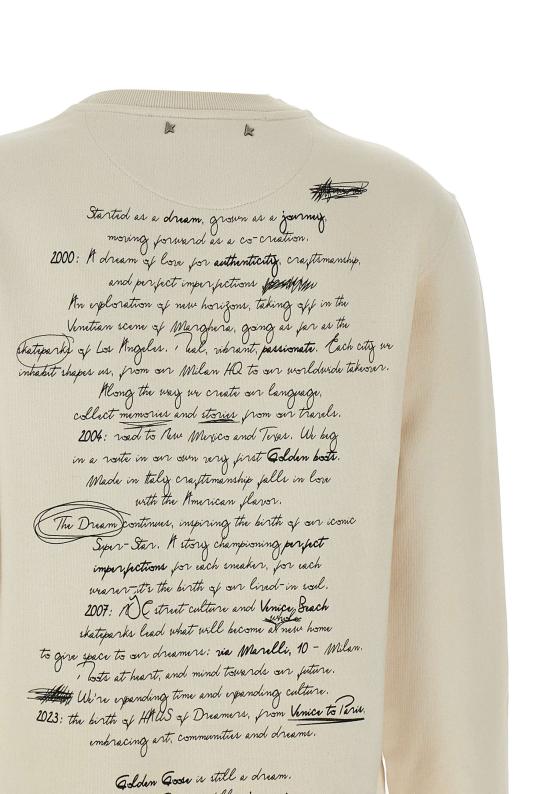 Started as a dream, grown as a journey,
moving forward as a co-creation.
2000: A dream of love for authenticity, craftsmanship,
and perfect imperfections
An exploration of new horizons, taking off in the
Venetian scene of Marghera, going as far as the
skateparks of Los Angeles. Real, vibrant, passionate. Each city we
inhabit shapes us, from our Milan HQ to our worldwide takeover.
Along the way we create our language,
collect memories and stories from our travels.
2004: road to New Mexico and Texas. We beg
in a route in our own very first Golden boots.
Made in Italy craftsmanship falls in love
with the American flavor.
The Dream continues, inspiring the birth of our iconic
Super-Star. A story championing perfect
imperfections for each sneaker, for each
wearer-it's the birth of our lived-in soul.
2007: NYC street culture and Venice Beach
skateparks lead what will become a whole new home
to give space to our dreamers: via Morelli, 10 - Milan.
Roots at heart, and mind towards our future.
We're expanding time and expanding culture.
2023: the birth of HAUS of Dreamers, from Venice to Paris,
embracing art, communities and dreams.
Golden Goose is still a dream.